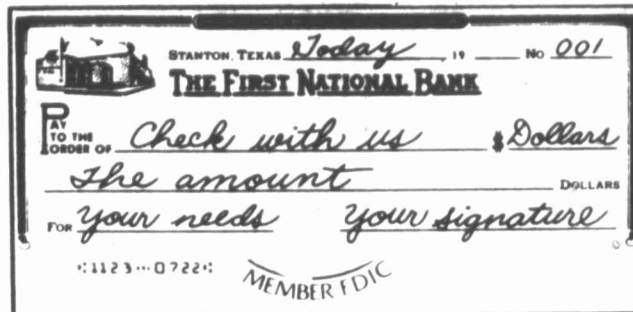 STANTON, TEXAS Today, 19 No 001
THE FIRST NATIONAL BANK
PAY TO THE ORDER OF Check with us $ Dollars
The amount DOLLARS
FOR Your needs Your signature
⑆1123⑉0722⑆
MEMBER FDIC